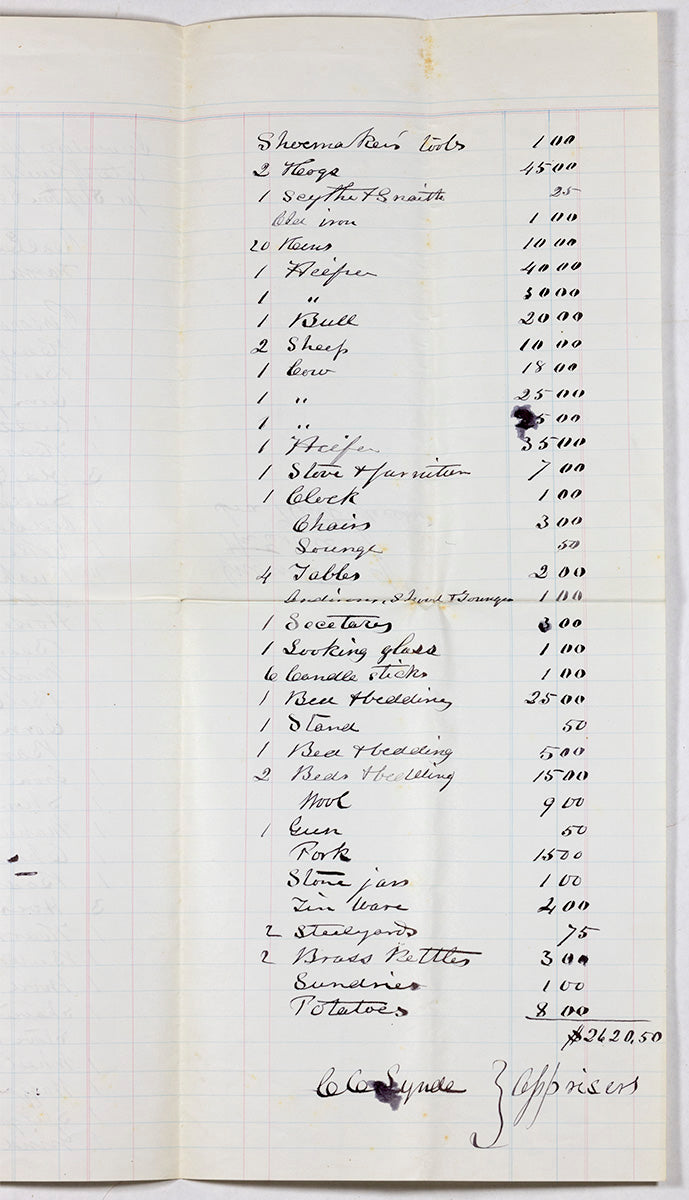 Shoemakers tools 1 00
2 Hogs 45 00
1 Scythe & Snaith 25
Old iron 1 00
20 Hens 10 00
1 Heifer 40 00
1 " 30 00
1 Bull 20 00
2 Sheep 10 00
1 Cow 18 00
1 " 25 00
1 " 25 00
1 Heifer 35 00
1 Stove & furniture 7 00
1 Clock 1 00
Chairs 3 00
Lounge 50
4 Tables 2 00
Andirons, Shovel & Tounges 1 00
1 Secetary 3 00
1 Looking glass 1 00
6 Candle sticks 1 00
1 Bed & bedding 25 00
1 Stand 50
1 Bed & bedding 5 00
2 Beds & bedding 15 00
Wool 9 00
1 Gun 50
Pork 15 00
Stone jars 1 00
Tin Ware 4 00
2 Steelyards 75
2 Brass Kettles 3 00
Sundries 1 00
Potatoes 8 00
$2620.50
C C Lynde } Apprisers